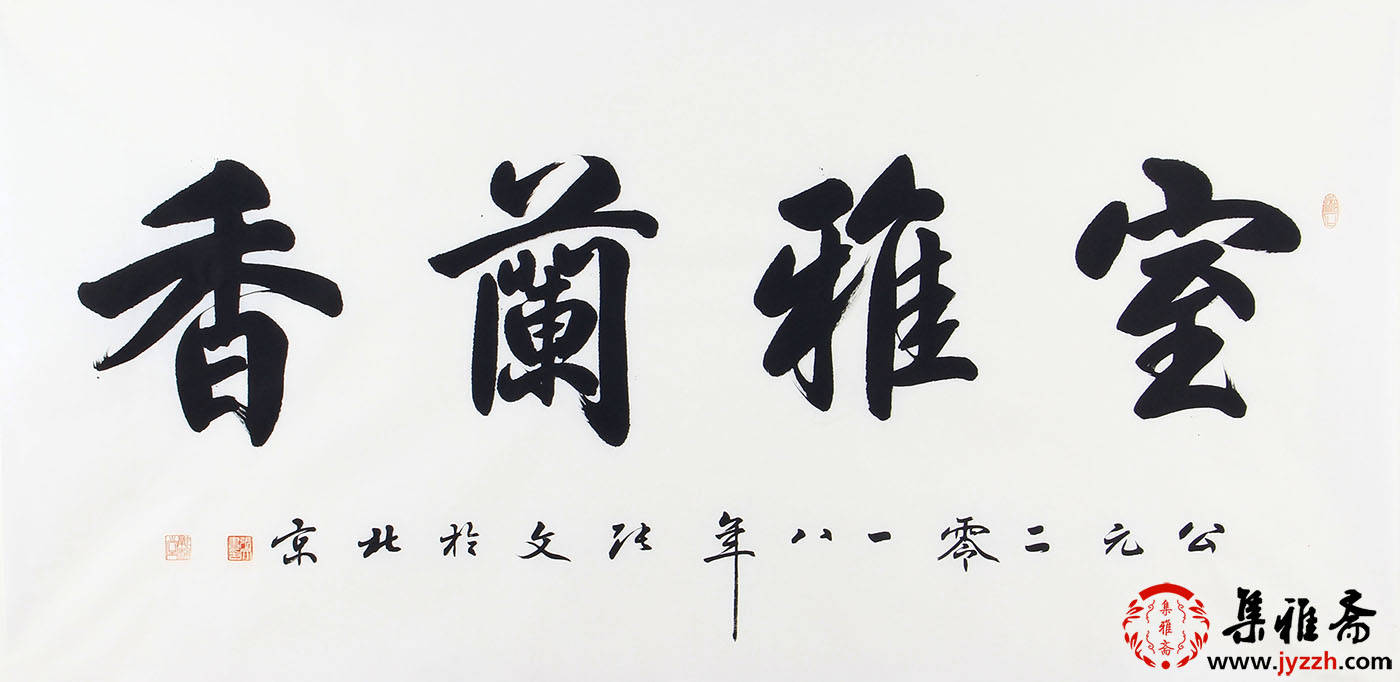 室雅蘭香
公元二零一八年张文於北京
集雅斋
集雅斋
www.jyzzh.com